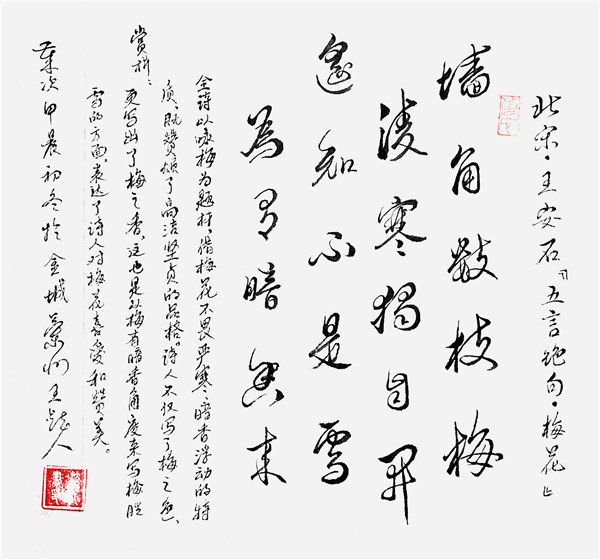 北宋·王安石『五言绝句·梅花』
墙角数枝梅
凌寒独自开
遥知不是雪
為有暗香来
赏析:
全诗以咏梅为题材,借梅花不畏严寒、暗香浮动的特
质,既赞颂了高洁坚贞的品格。诗人不仅写了梅之色、
更写出了梅之香,这也是从梅有暗香角度来写梅胜
雪的方面,表达了诗人对梅花喜爱和赞美。
岁次甲辰初冬於金城兰州王